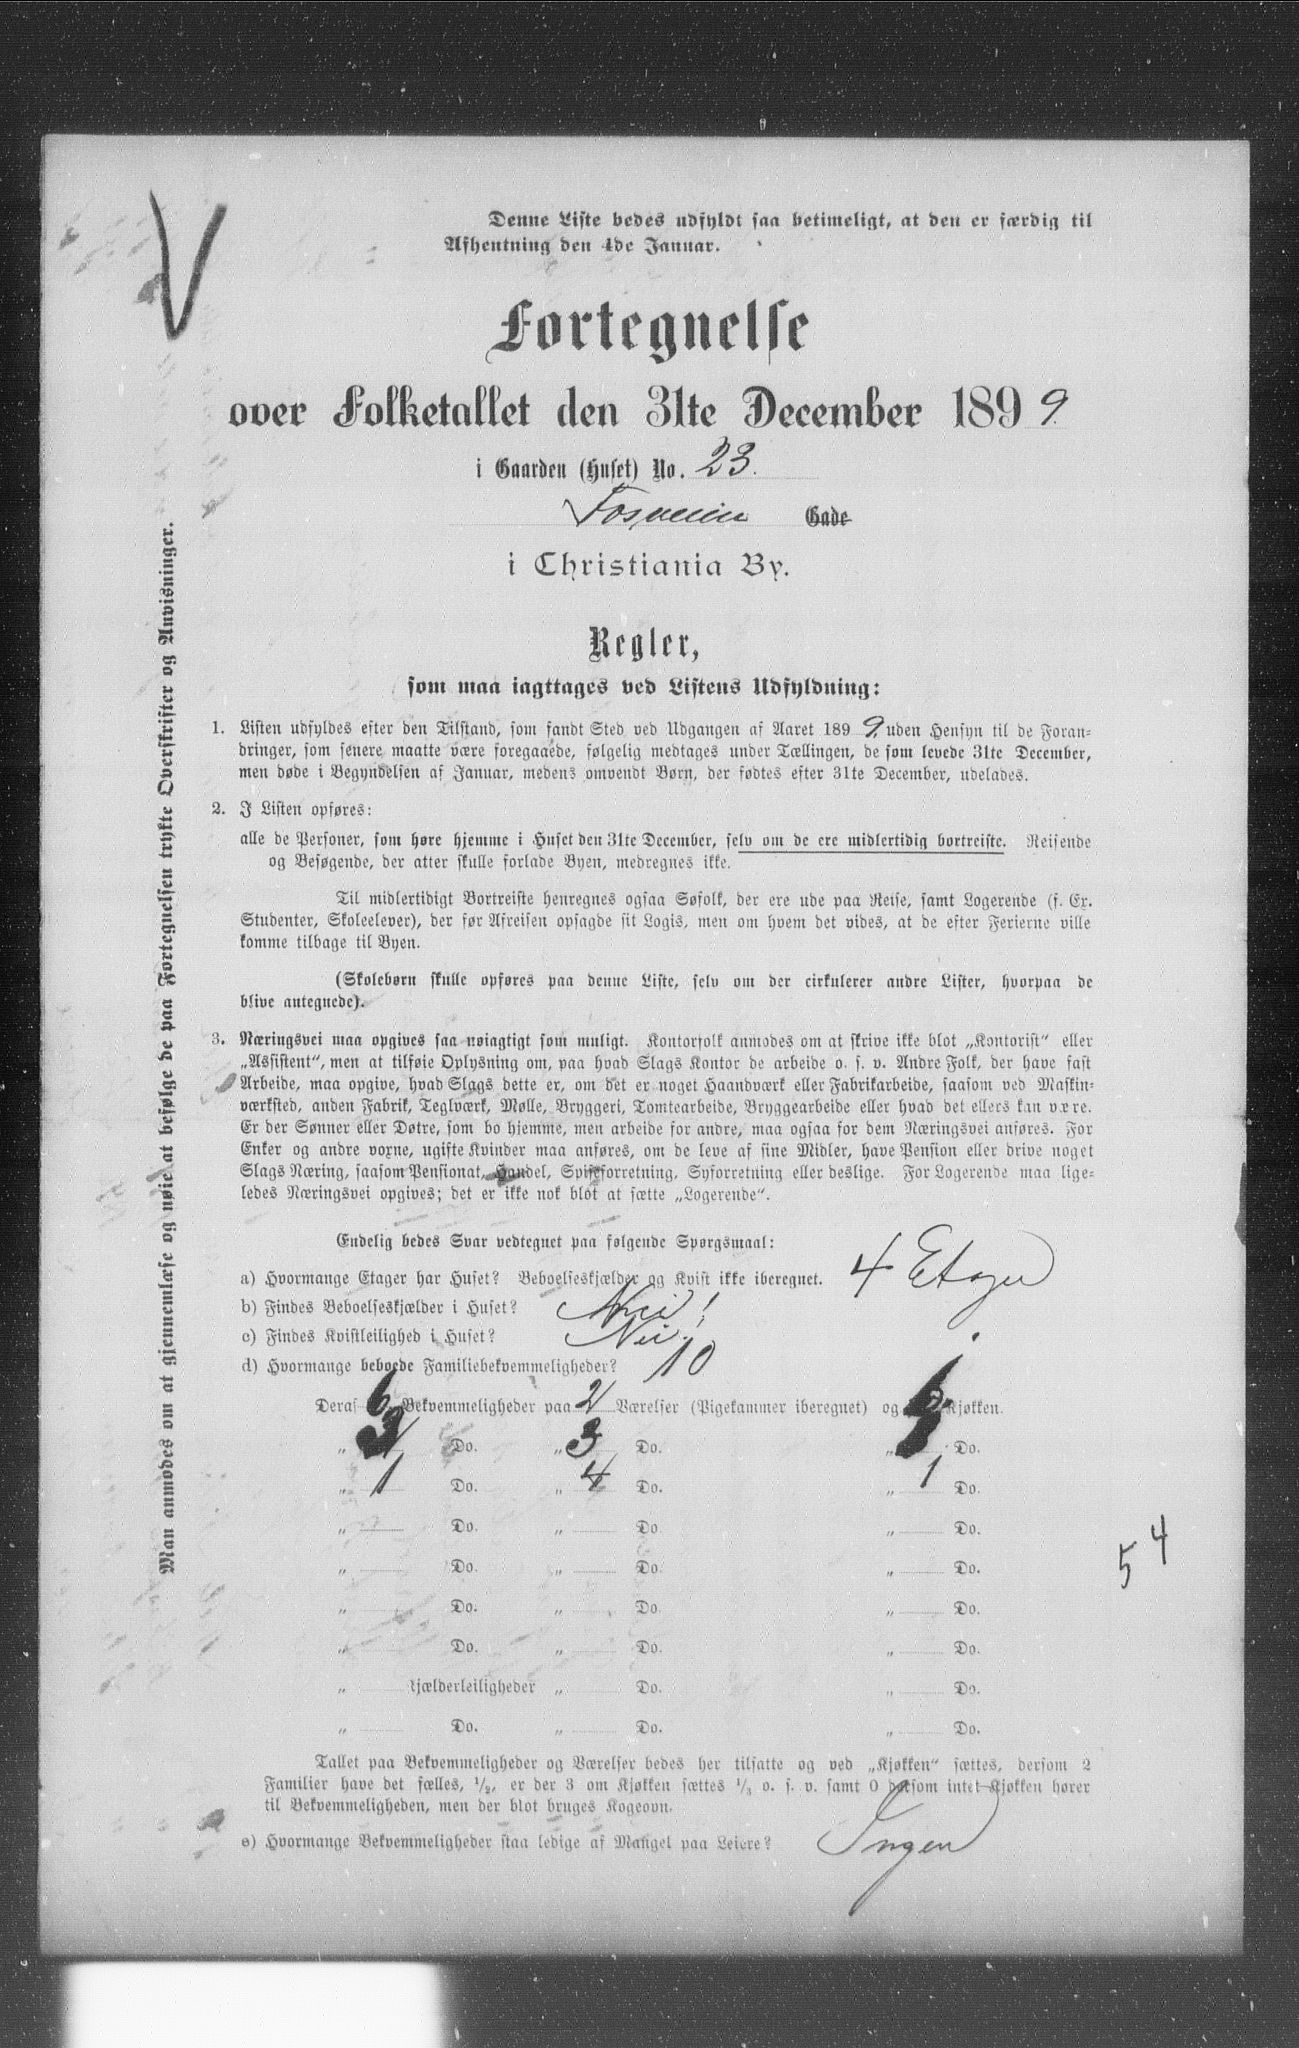 Denne Liste bedes udfyldt saa betimeligt, at den er færdig til
Afhentning den 4de Januar.
Fortegnelse
over Folketallet den 31te December 1899.
i Gaarden (Huset) No. 23.
Fosveien Gade
i Christiania By.
Regler,
som maa iagttages ved Listens Udfyldning:
1. Listen udfyldes efter den Tilstand, som fandt Sted ved Udgangen af Aaret 1899, uden Hensyn til de Foran-
dringer, som senere maatte være foregaaede, følgelig medtages under Tællingen, de som levede 31te December,
men døde i Begyndelsen af Januar, medens omvendt Børn, der fødtes efter 31te December, udelades.
2. I Listen opføres:
alle de Personer, som høre hjemme i Huset den 31te December, selv om de ere midlertidig bortreiste. Reisende
og Besøgende, der atter skulle forlade Byen, medregnes ikke.
Til midlertidigt Bortreiste henregnes ogsaa Søfolk, der ere ude paa Reise, samt Logerende (f. Ex.
Studenter, Skoleelever), der før Afreisen opsagde sit Logis, men om hvem det vides, at de efter Ferierne ville
komme tilbage til Byen.
(Skolebørn skulle opføres paa denne Liste, selv om der cirkulerer andre Lister, hvorpaa de
blive antegnede).
3. Næringsvei maa opgives saa nøiagtigt som muligt. Kontorfolk anmodes om at skrive ikke blot „Kontorist" eller
„Assistent", men at tilføie Oplysning om, paa hvad Slags Kontor de arbeide o. s. v. Andre Folk, der have fast
Arbeide, maa opgive, hvad Slags dette er, om det er noget Haandværk eller Fabrikarbeide, saasom ved Maskin-
værksted, anden Fabrik, Teglværk, Mølle, Bryggeri, Tomtearbeide, Bryggearbeide eller hvad det ellers kan være.
Er der Sønner eller Døtre, som bo hjemme, men arbeide for andre, maa ogsaa for dem Næringsvei anføres. For
Enker og andre voxne, ugifte Kvinder maa anføres, om de leve af sine Midler, have Pension eller drive noget
Slags Næring, saasom Pensionat, Handel, Spiseforretning, Syforretning eller deslige. For Logerende maa lige-
ledes Næringsvei opgives; det er ikke nok blot at sætte „Logerende".
Endelig bedes Svar vedtegnet paa følgende Spørgsmaal:
a) Hvormange Etager har Huset? Beboelseskjælder og Kvist ikke iberegnet. 4 Etager
b) Findes Beboelseskjælder i Huset? Nei!
c) Findes Kvistleilighed i Huset? Nei.
d) Hvormange beboede Familiebekvemmeligheder? 10
Deraf 6 Bekvemmeligheder paa 2 Værelser (Pigekammer iberegnet) og Kjøkken.
„ 3 Do. „ 3 Do. „ Do.
„ 1 Do. „ 4 Do. „ 1 Do.
„ Do. „ Do „ Do.
„ Do. „ Do. „ Do.
„ Do. „ Do „ Do.
„ Do. „ Do. „ Do.
„ kjælderleiligheder „ Do. „ Do.
„ Do. „ Do. „ Do.
5 4
Tallet paa Bekvemmeligheder og Værelser bedes her tilsatte og ved „Kjøkken" sættes, dersom 2
Familier have det fælles, 1/2, er der 3 om Kjøkken sættes 1/3 o. s. v. samt 0 dersom intet Kjøkken hører
til Bekvemmeligheden, men der blot bruges Kogeovn.
e) Hvormange Bekvemmeligheder staa ledige af Mangel paa Leiere? Ingen
Man anmodes om at gjennemlæse og nøie at befølge de paa Fortegnelsen trykte Overskrifter og Anvisninger.